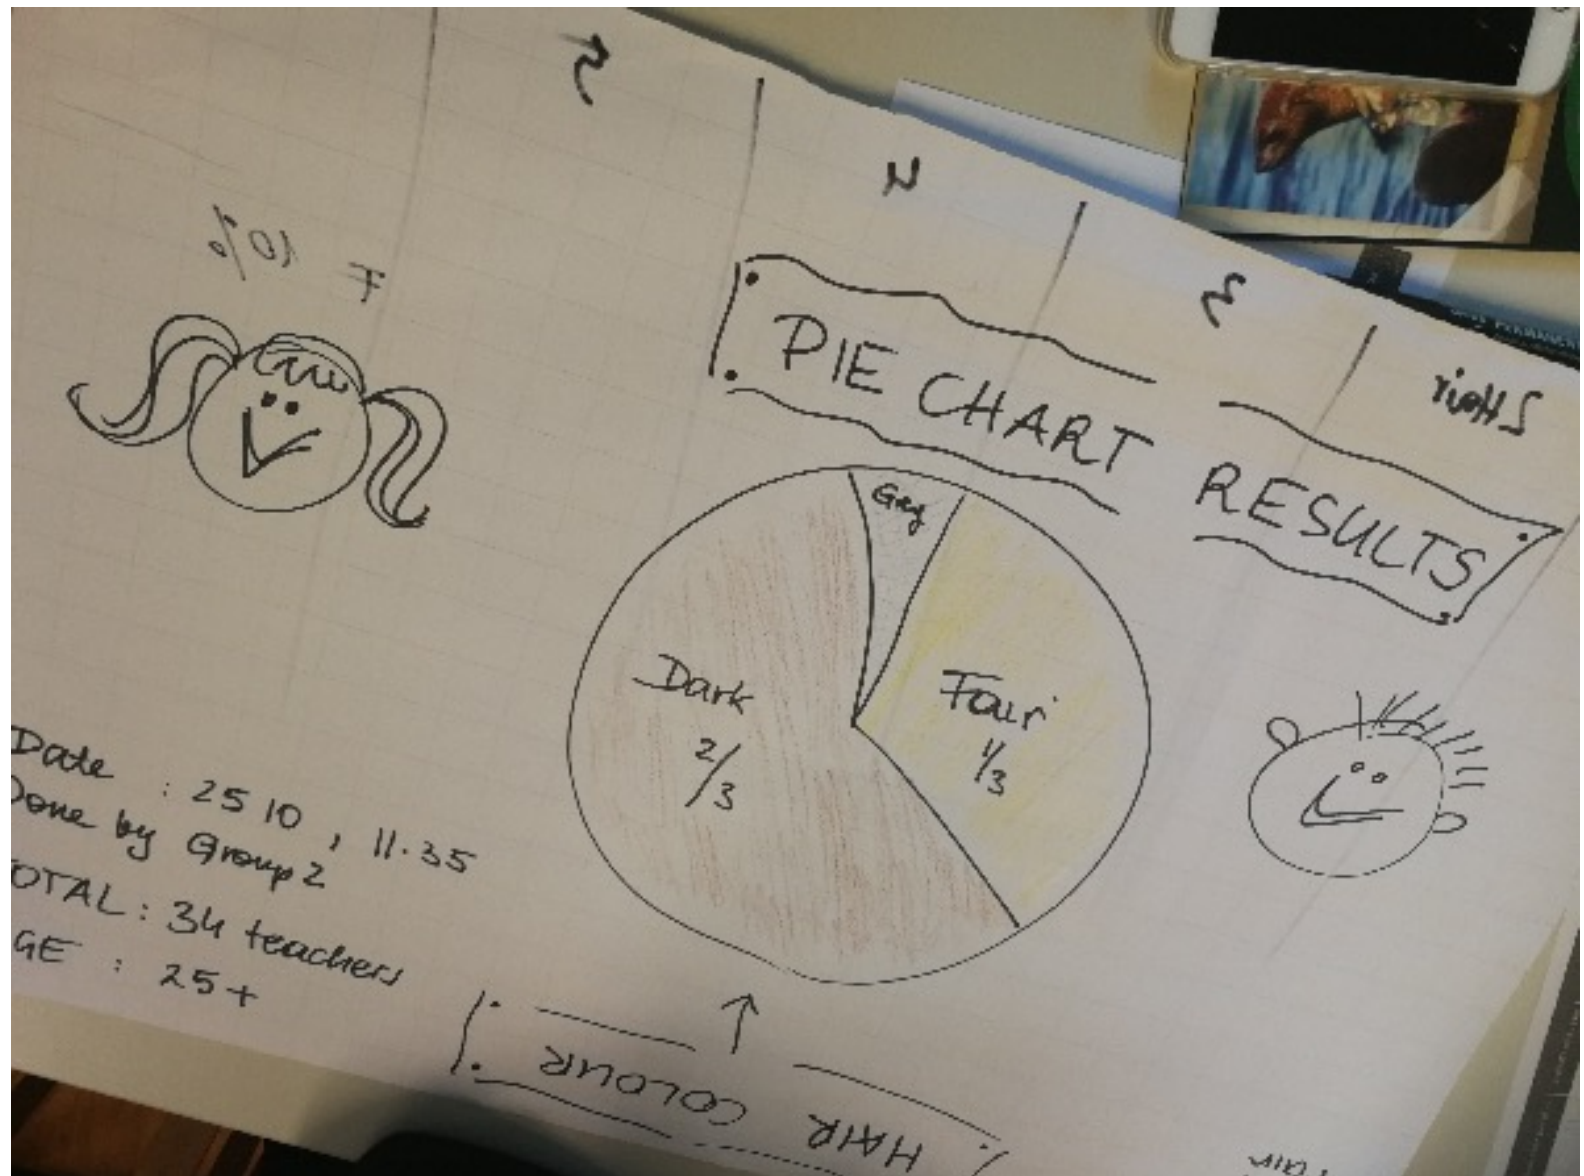 5
N
3
F 10%
PIE CHART RESULTS
Grey
Dark
2/3
Fair
1/3
Date : 25 10 , 11.35
Done by Group 2
OTAL : 34 teachers
GE : 25+
HAIR COLOUR